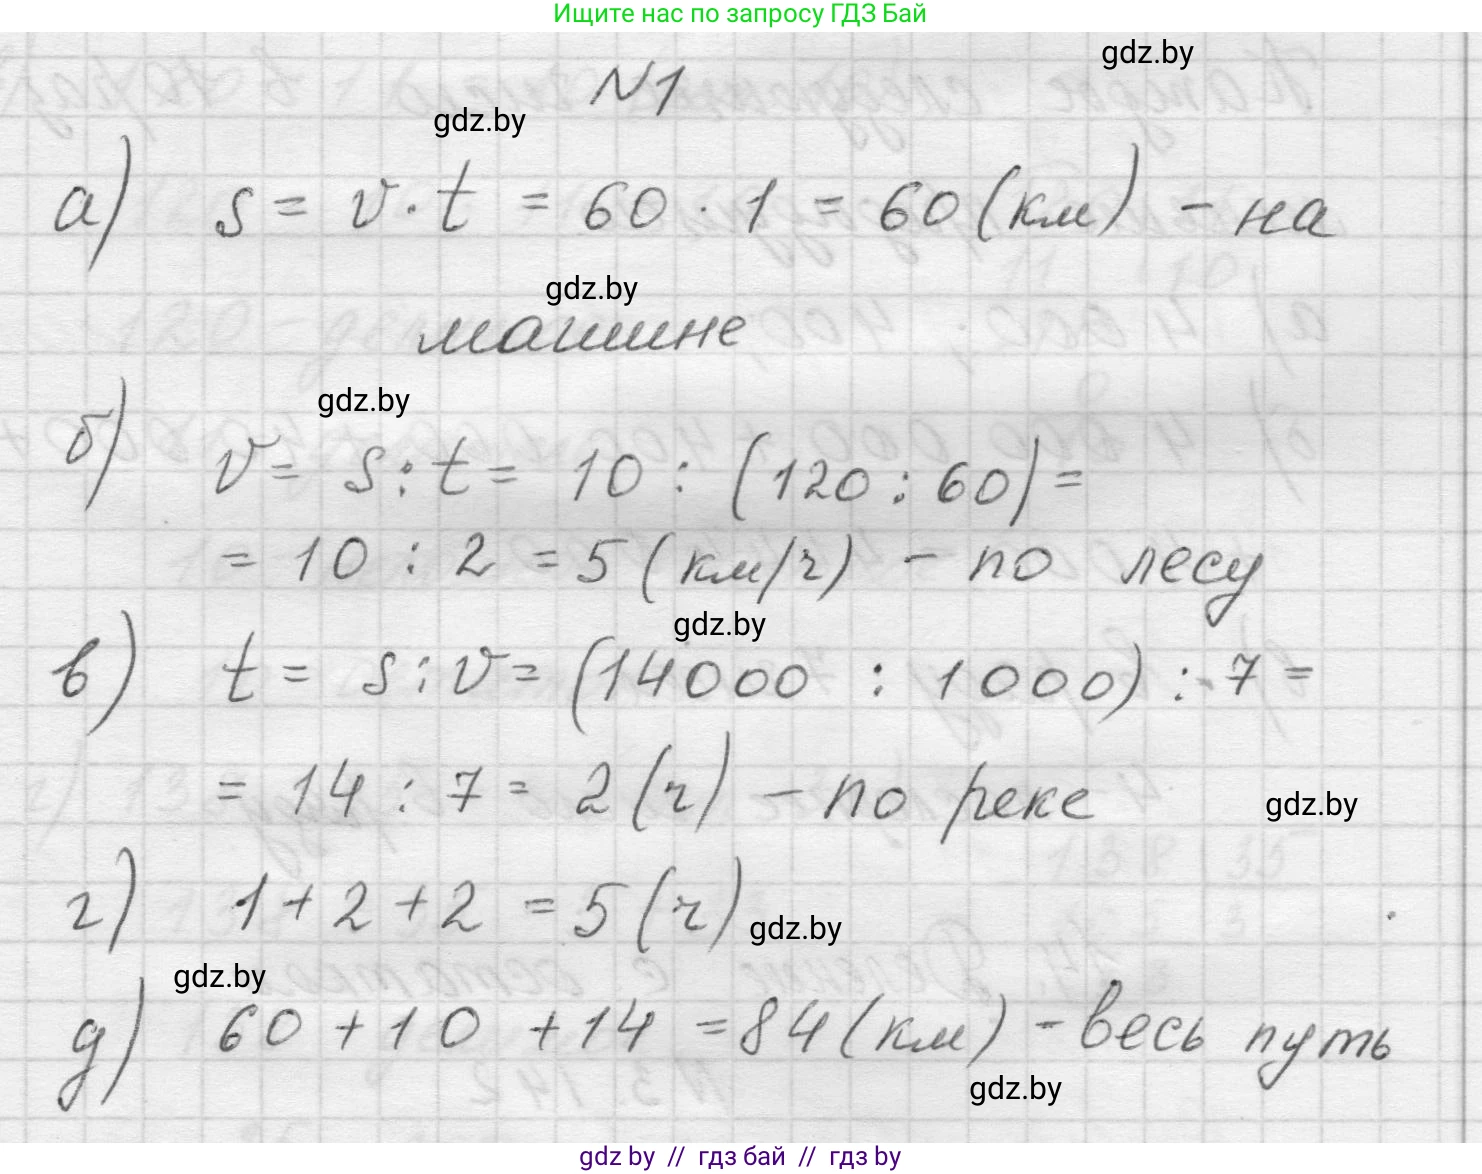 Ищите нас по запросу ГДЗ Бай
gdz.by
N1
gdz.by
а) s = v · t = 60 · 1 = 60 (км) - на
gdz.by
машине
gdz.by
б) v = s : t = 10 : (120 : 60) =
= 10 : 2 = 5 (км/ч) - по лесу
gdz.by
в) t = s : v = (14000 : 1000) : 7 =
= 14 : 7 = 2 (ч) - по реке
gdz.by
г) 1 + 2 + 2 = 5 (ч)
gdz.by
gdz.by
д) 60 + 10 + 14 = 84 (км) - весь путь
gdz.by
gdz by // гдз бай // гдз by